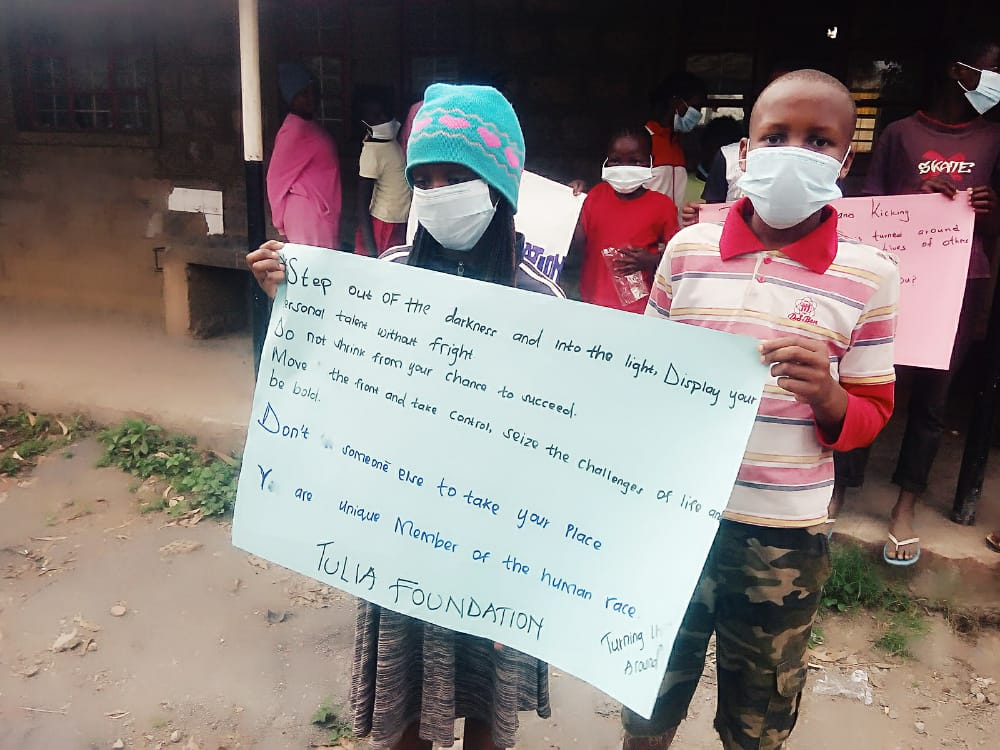 Step out OF the darkness and into the light, Display your
personal talent without fright
Do not shrink from your chance to succeed.
Move the front and take control, seize the challenges of life and
be bold.
Don't someone else to take your Place
You are unique Member of the human race.
TULIA FOUNDATION
Turning
Around
Kicking
turned around
Lives of others
SKATE